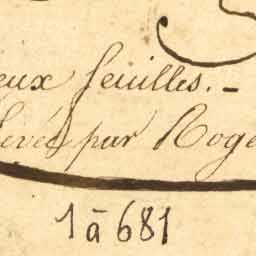 eux feuilles. -
levé par Roge
1 à 681